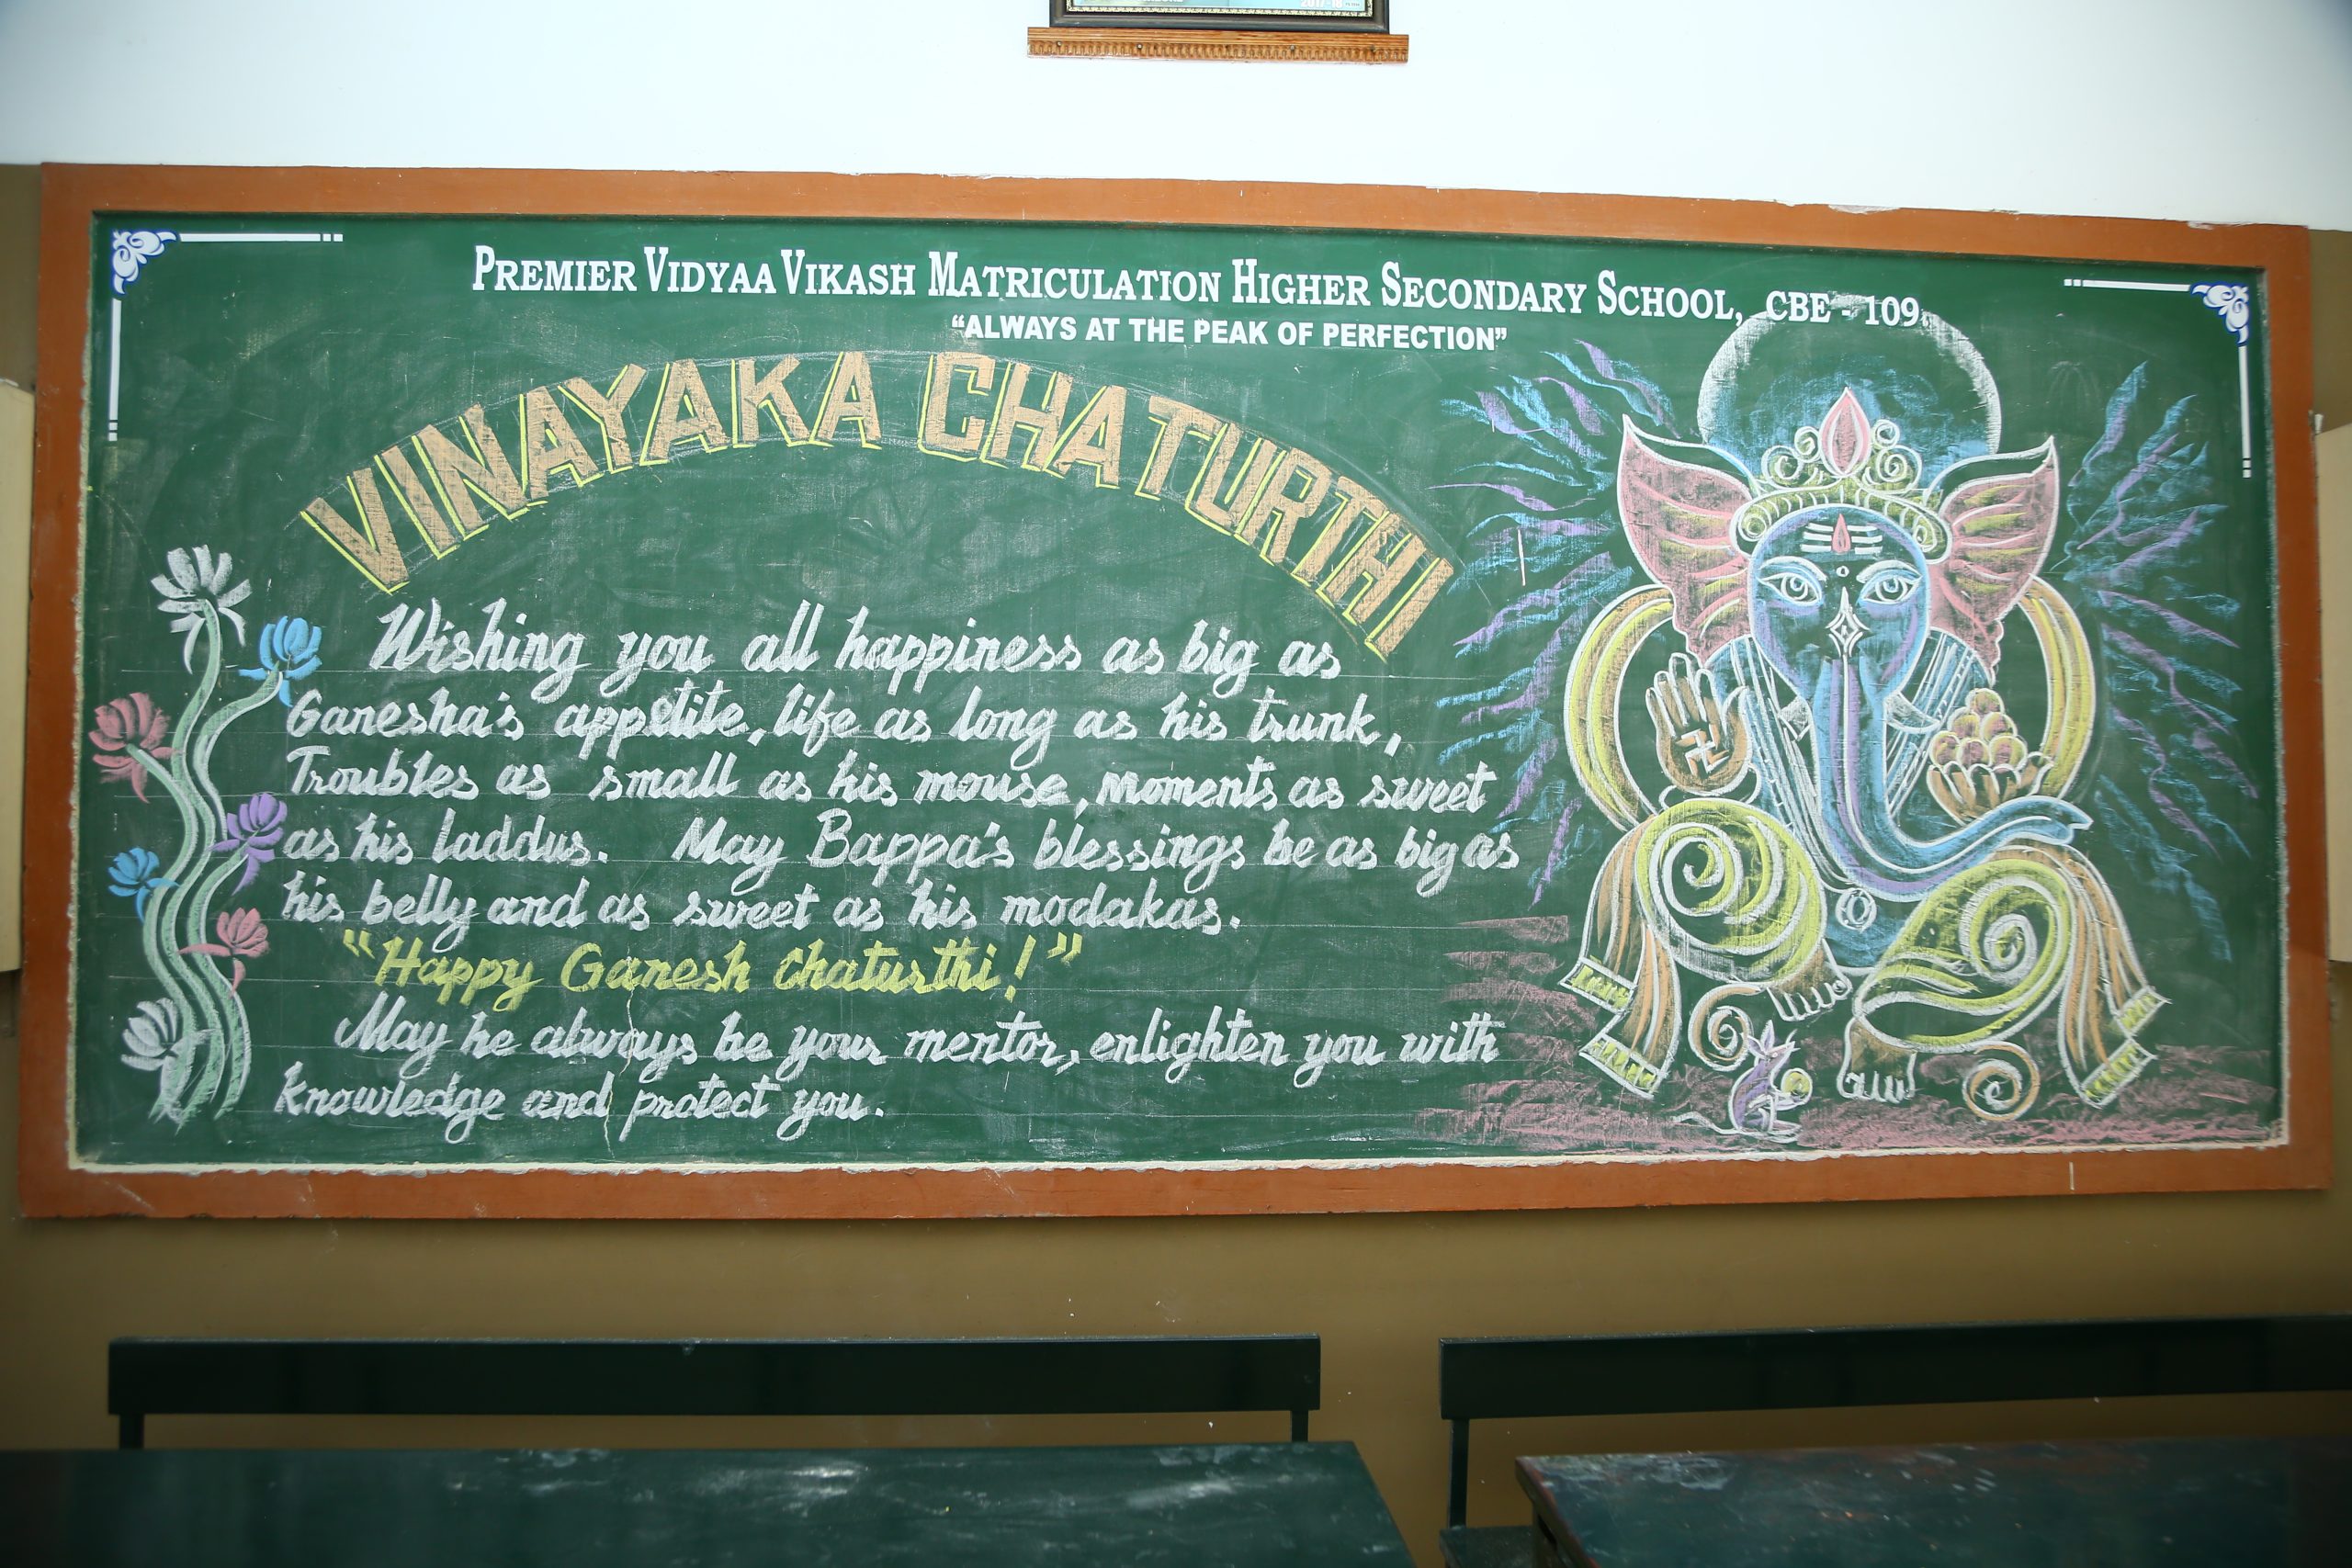 2017-18
PREMIER VIDYAA VIKASH MATRICULATION HIGHER SECONDARY SCHOOL, CBE - 109.
"ALWAYS AT THE PEAK OF PERFECTION"
VINAYAKA CHATURTHI
Wishing you all happiness as big as
Ganesha's appetite, life as long as his trunk,
Troubles as small as his mouse, moments as sweet
as his laddus. May Bappa's blessings be as big as
his belly and as sweet as his modakas.
"Happy Ganesh Chaturthi!"
May he always be your mentor, enlighten you with
knowledge and protect you.